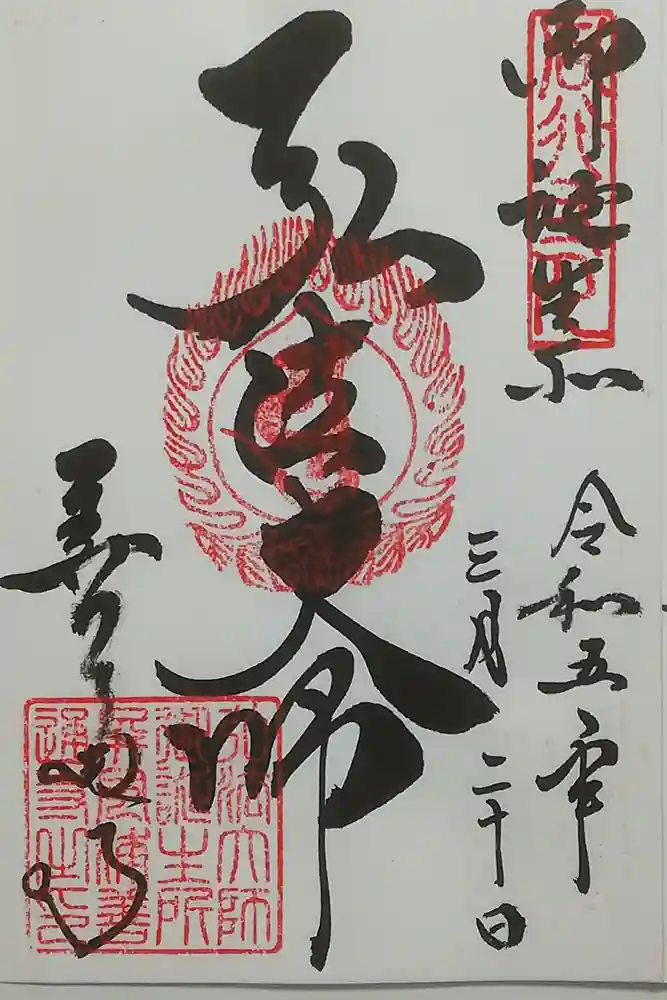 御誕生所
令和五年
三月二十日
弘法大師
弘法大師
御誕生所
屏風浦善
通寺之印